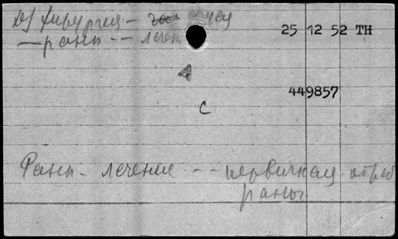 хирургия –
25 12 52 TH
— раны – – лечен
449857
С
Раны - лечение - - первичная обраб
раны